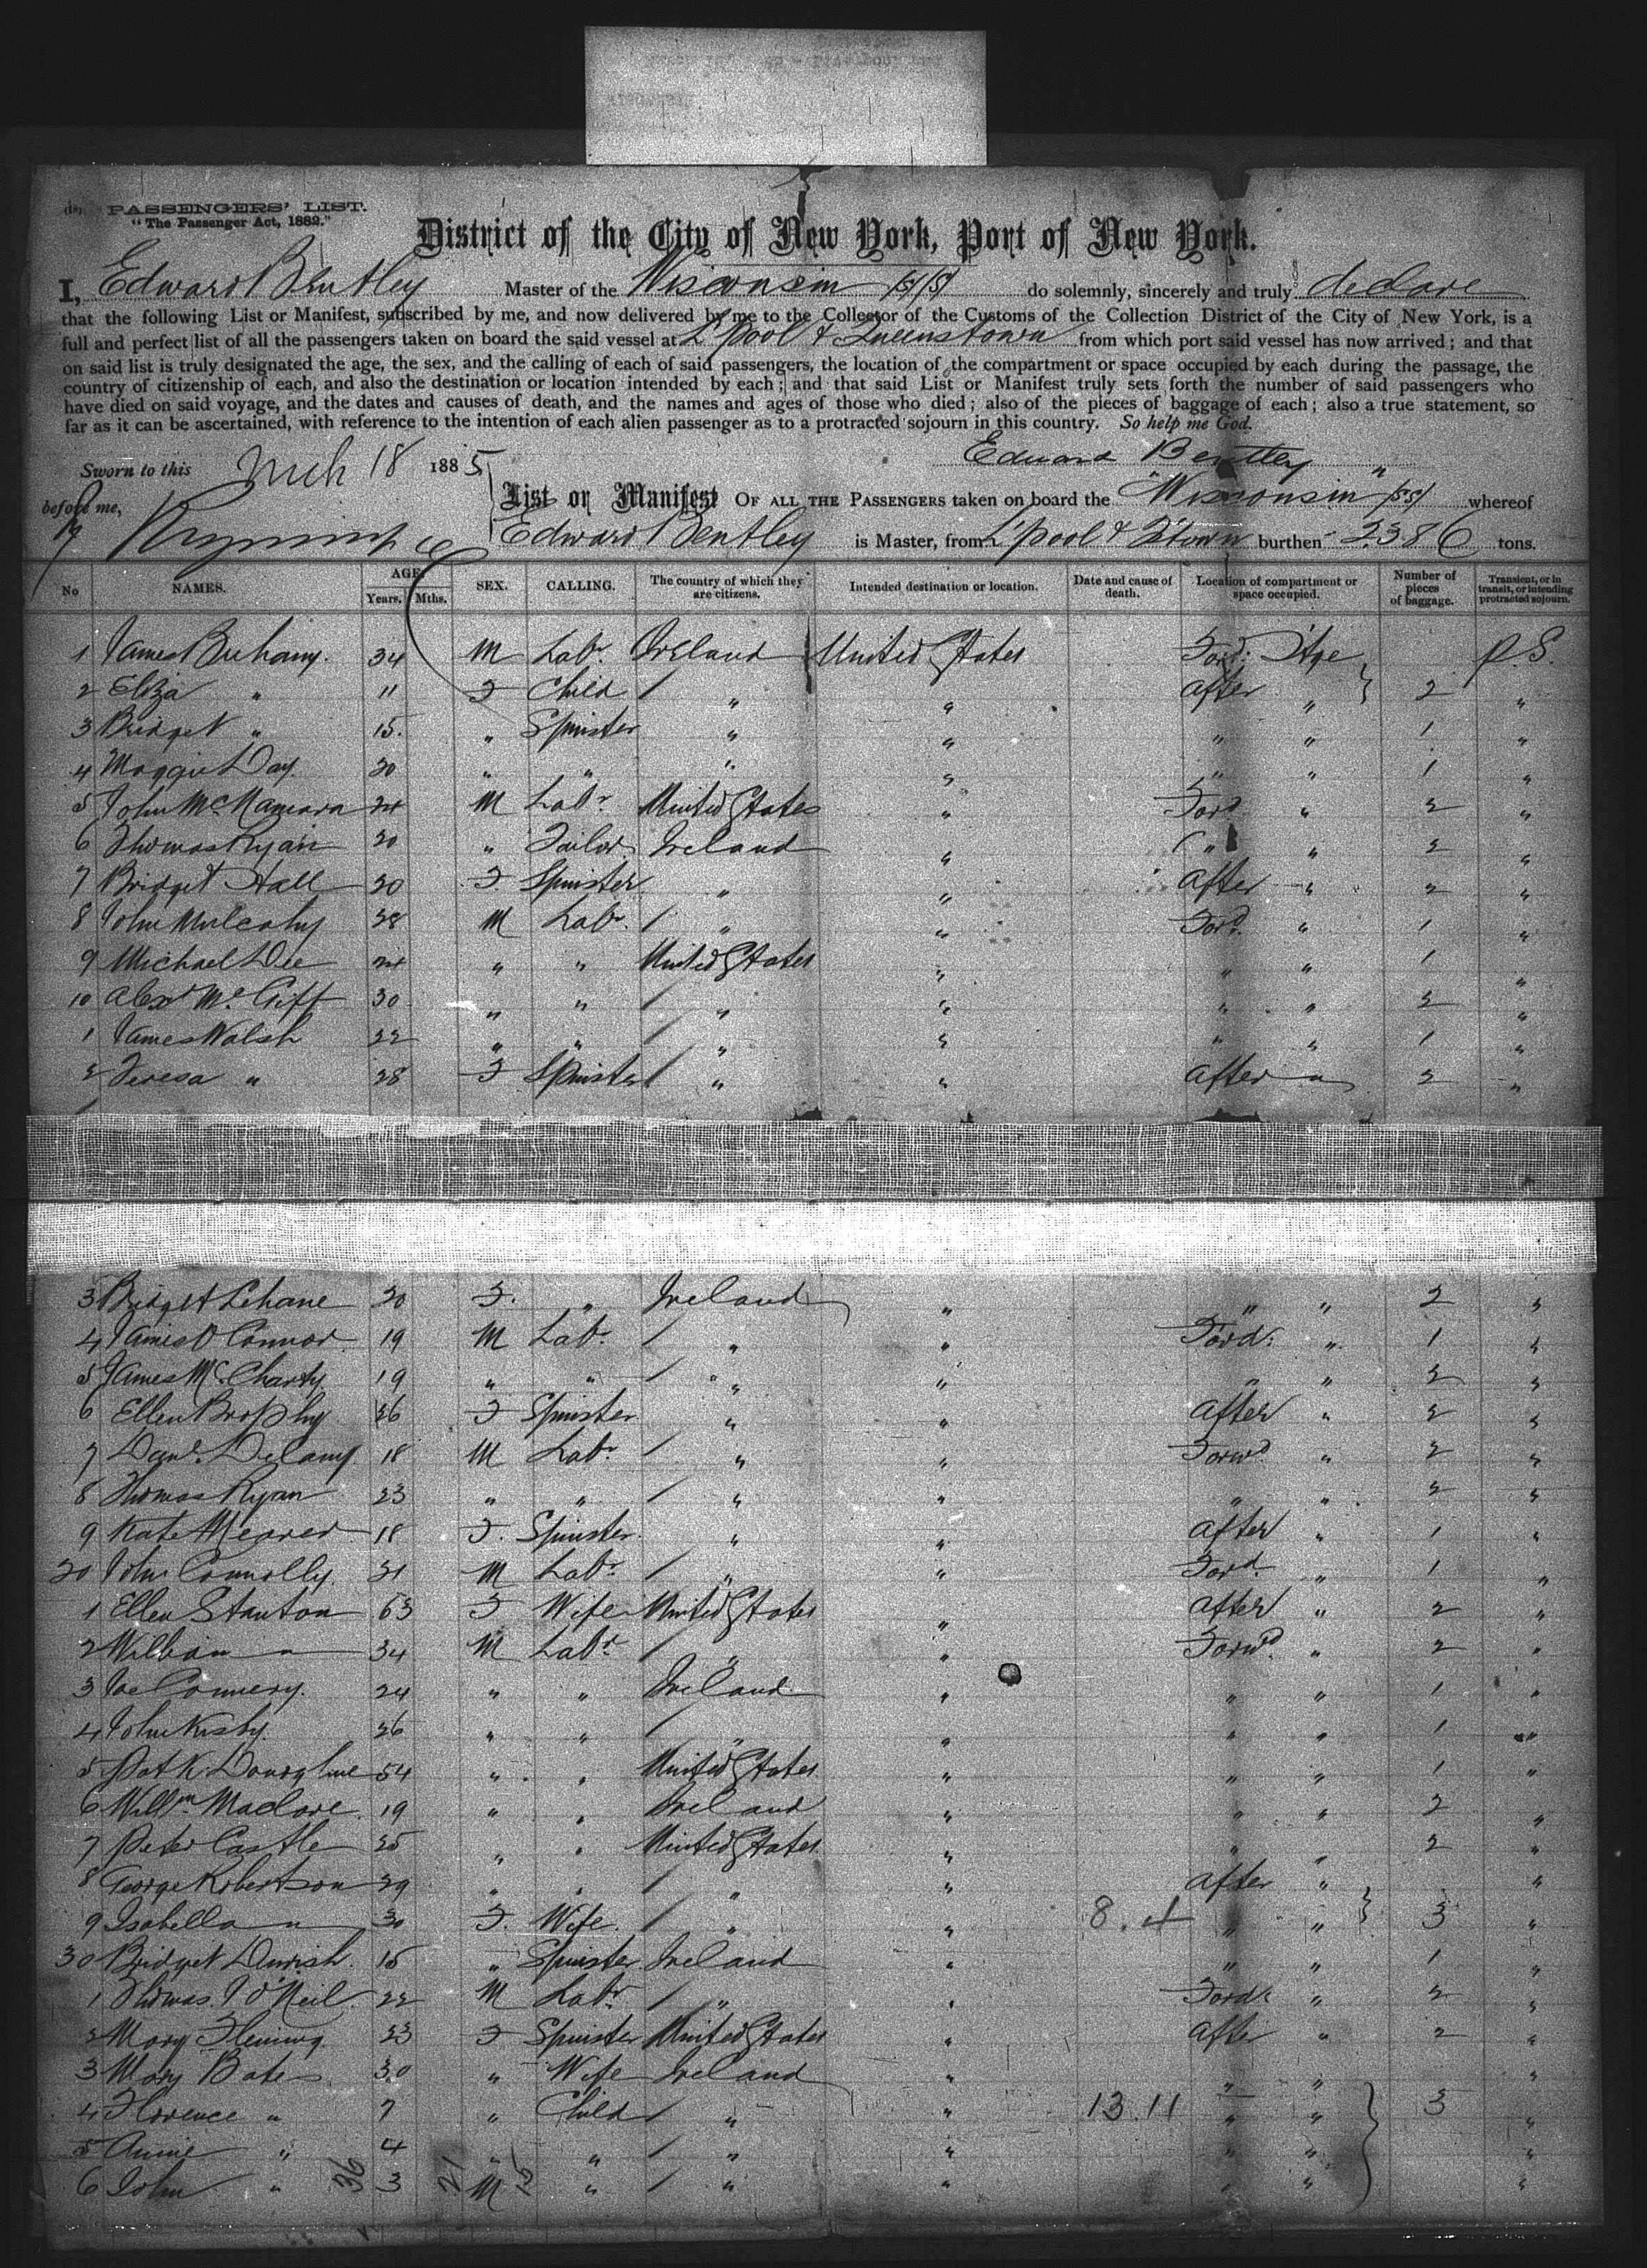 PASSENGERS' LIST.
"The Passenger Act, 1882."
District of the City of New York, Port of New York.
I, Edward Bentley Master of the Wisconsin (SS) do solemnly, sincerely and truly declare
that the following List or Manifest, subscribed by me, and now delivered by me to the Collector of the Customs of the Collection District of the City of New York, is a
full and perfect list of all the passengers taken on board the said vessel at L'pool & Queenstown from which port said vessel has now arrived; and that
on said list is truly designated the age, the sex, and the calling of each of said passengers, the location of the compartment or space occupied by each during the passage, the
country of citizenship of each, and also the destination or location intended by each; and that said List or Manifest truly sets forth the number of said passengers who
have died on said voyage, and the dates and causes of death, and the names and ages of those who died; also of the pieces of baggage of each; also a true statement, so
far as it can be ascertained, with reference to the intention of each alien passenger as to a protracted sojourn in this country. So help me God.
Edward Bentley
Sworn to this Mch 18 1885
before me,
List or Manifest OF ALL THE PASSENGERS taken on board the "Wisconsin" (SS) whereof
Edward Bentley is Master, from L'pool & Q'town burthen 2386 tons.
No NAMES. AGE. Years. Mths. SEX. CALLING. The country of which they are citizens. Intended destination or location. Date and cause of death. Location of compartment or space occupied. Number of pieces of baggage. Transient, or in transit, or intending protracted sojourn.
1 James 34 M Labr. Ireland United States Ford. Stge P.S.
2 Eliza " 11 F Child / " " After " 2 "
3 Bridget " 15 " Spinster " " " " 1 "
4 Maggie Day 20 " " " " " " 1 "
5 John McNamara 24 M Labr United States " Ford " 2 "
6 Thomas Ryan 20 " Tailor Ireland " " " 2 "
7 Bridget Hall 20 F Spinster " " After " 2 "
8 John Mulcahy 28 M Labr. / " " Ford. " 1 "
9 Michael Dee 24 " " United States " " " 1 "
10 Alexr Mc 30 " " / " " " " 2 "
1 James Walsh 22 " " / " " " " 1 "
2 Teresa " 28 F Spinster / " " After " 2 "
3 Bridget Lehane 20 F. " Ireland " " " 2 "
4 James O'Connor 19 M Labr. / " " Ford. " 1 "
5 James McCharty 19 " " / " " " " 2 "
6 Ellen Brophy 26 F Spinster " " After " 2 "
7 Danl. Delany 18 M Labr. / " " Forwd " 2 "
8 Thomas Ryan 23 " " / " " " " 2 "
9 Kate 18 F. Spinster " " After " 1 "
20 John Connolly. 21 M Labr. / " " Ford. " 1 "
1 Ellen Stanton 63 F Wife United States " After " 2 "
2 William " 34 M Labr / " " Forwd. " 2 "
3 Connery. 24 " " Ireland " " " 1 "
4 John 26 " " / " " " " 1 "
5 Patk. Donoghue 54 " " United States " " " 1 "
6 Willm 19 " " Ireland " " " 2 "
7 Peter Castle 25 " " United States " " " 2 "
8 George Robertson 29 " " / " " After " "
9 Isabella " 30 F. Wife. / " " 8.4 " " 3 "
30 Bridget 15 " Spinster Ireland " " " 1 "
1 Thomas O'Neil 22 M Labr / " " Ford. " 2 "
2 Mary Fleming. 23 F Spinster United States " After " 2 "
3 Mary Bates 30 " Wife Ireland " " " "
4 Florence " 7 " Child / " " 13.11 " " 3 "
5 Annie " 4 " " / " " " " "
6 John " 3 M " / " " " " "
36 21 15